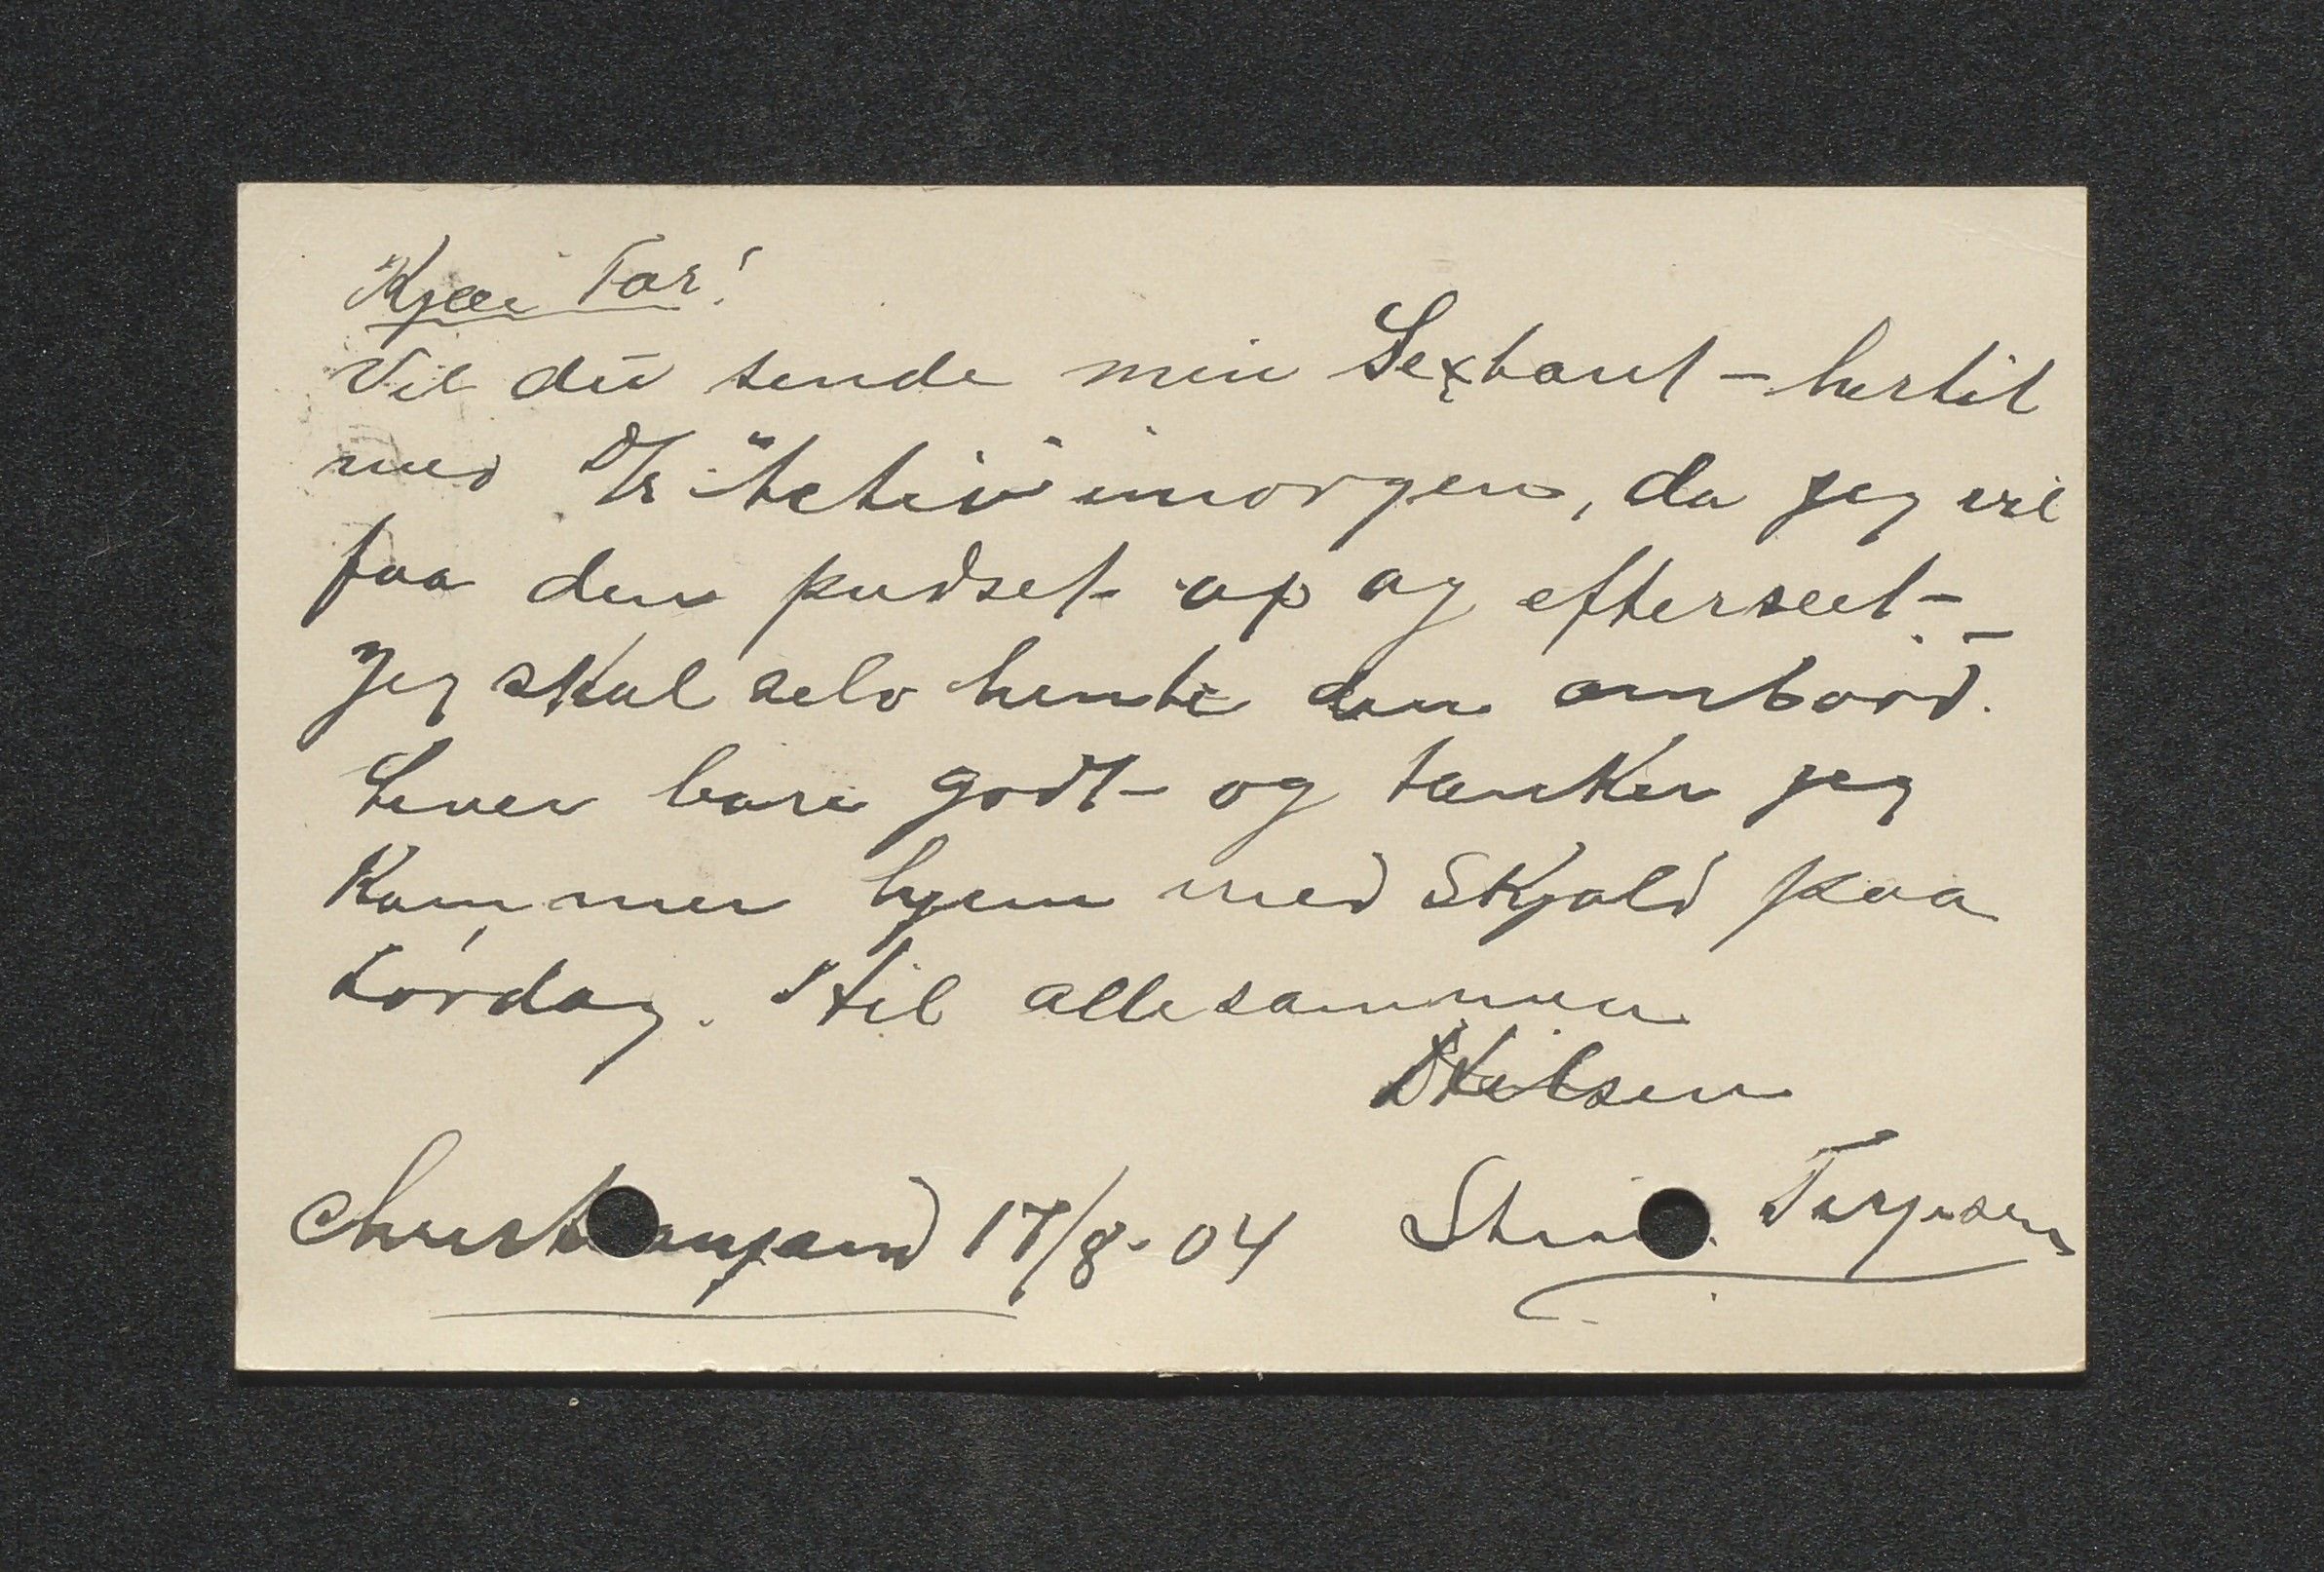 Kjære Far!
Vil du sende min Sextant - hertil
med D/S "Activ" imorgen, da jeg vil
faa den pudset op og efterseet -
Jeg skal selv hente den ombord.
Lever bare godt og tænker jeg
kommer hjem med Skjold paa
Lørdag. Hil allesammen
Hilsen
Christiansand 17/8-04 Terjesen